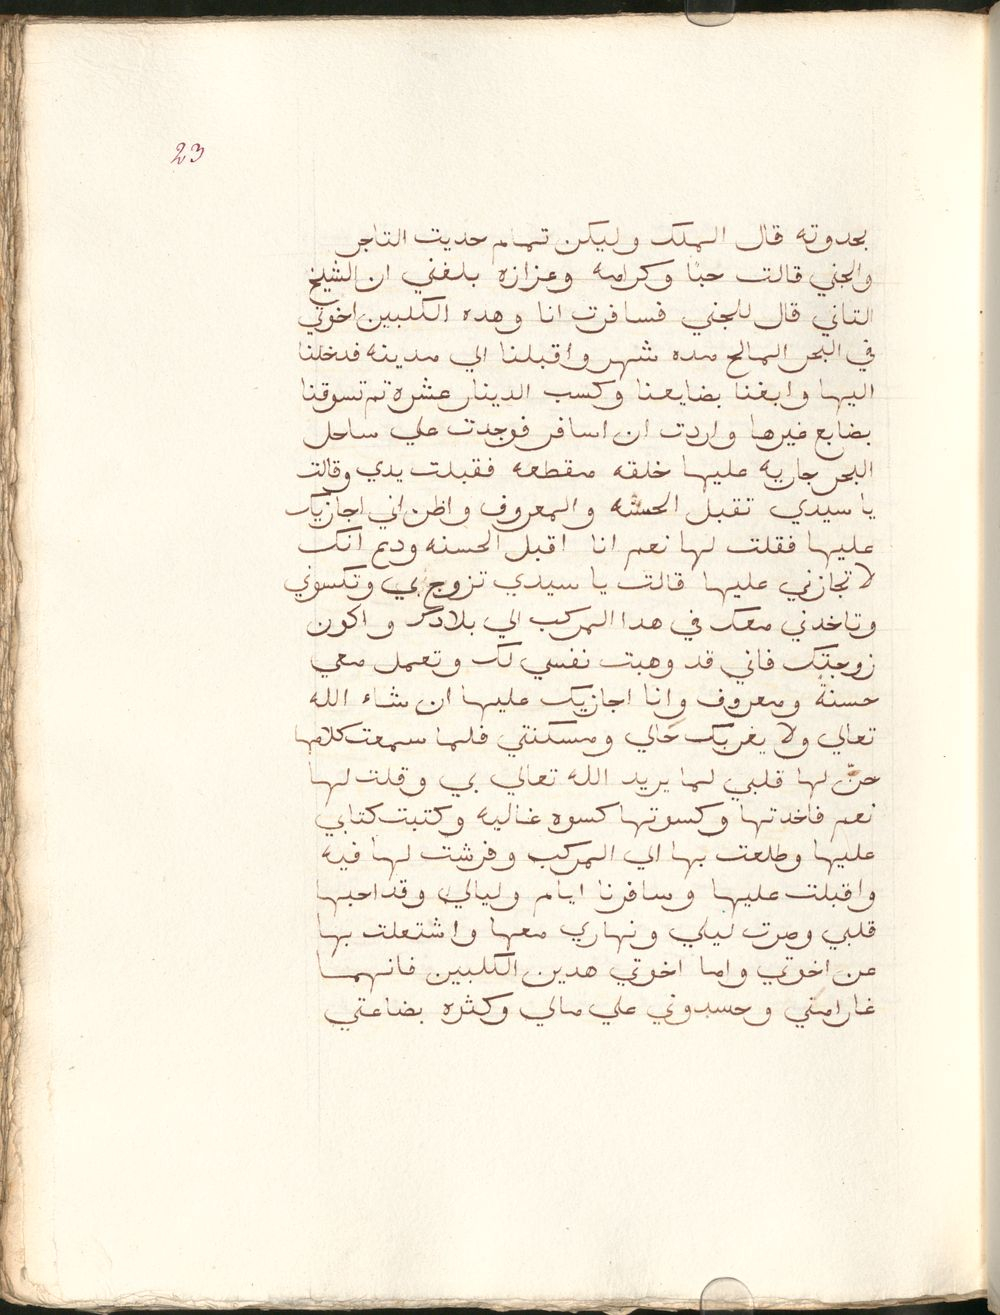 23
بحدوته قال الملك وليكن تمام حديت التاجر
والجني قالت حبًا وكرامه وعزازه بلغني ان الشيخ
التاني قال للجني فسافرت انا وهده الكلبين اخوتي
في البحر المالح مده شهر واقبلنا الي مدينه فدخلنا
اليها وابعنا بضايعنا وكسب الدينار عشره تم تسوقنا
بضايع غيرها واردت ان اسافر فوجدت علي ساحل
البحر جاريه عليها خلقه مقطعه فقبلت يدي وقالت
يا سيدي تقبل الحسنه والمعروف واظن اني اجازيك
عليها فقلت لها نعم انا اقبل الحسنه وديم انك
لا تجازني عليها قالت يا سيدي تزوج بي وتكسوني
وتاخدني معك في هدا المركب الي بلادك واكون
زوجتك فاني قد وهبت نفسي لك وتعمل معي
حسنةً ومعروف وانا اجازيك عليها ان شاء الله
تعالي ولا يغربك حالي ومسكنتي فلما سمعت كلامها
حنّ لها قلبي لما يريد الله تعالي بي وقلت لها
نعم فاخدتها وكسوتها كسوه غاليه وكتبت كتابي
عليها وطلعت بها الي المركب وفرشت لها فيه
واقبلت عليها وسافرنا ايام وليالي وقد احبها
قلبي وصرت ليلي ونهاري معها واشتعلت بها
عن اخوتي واما اخوتي هدين الكلبين فانهما
غارا مني وحسدوني علي مالي وكثره بضاعتي